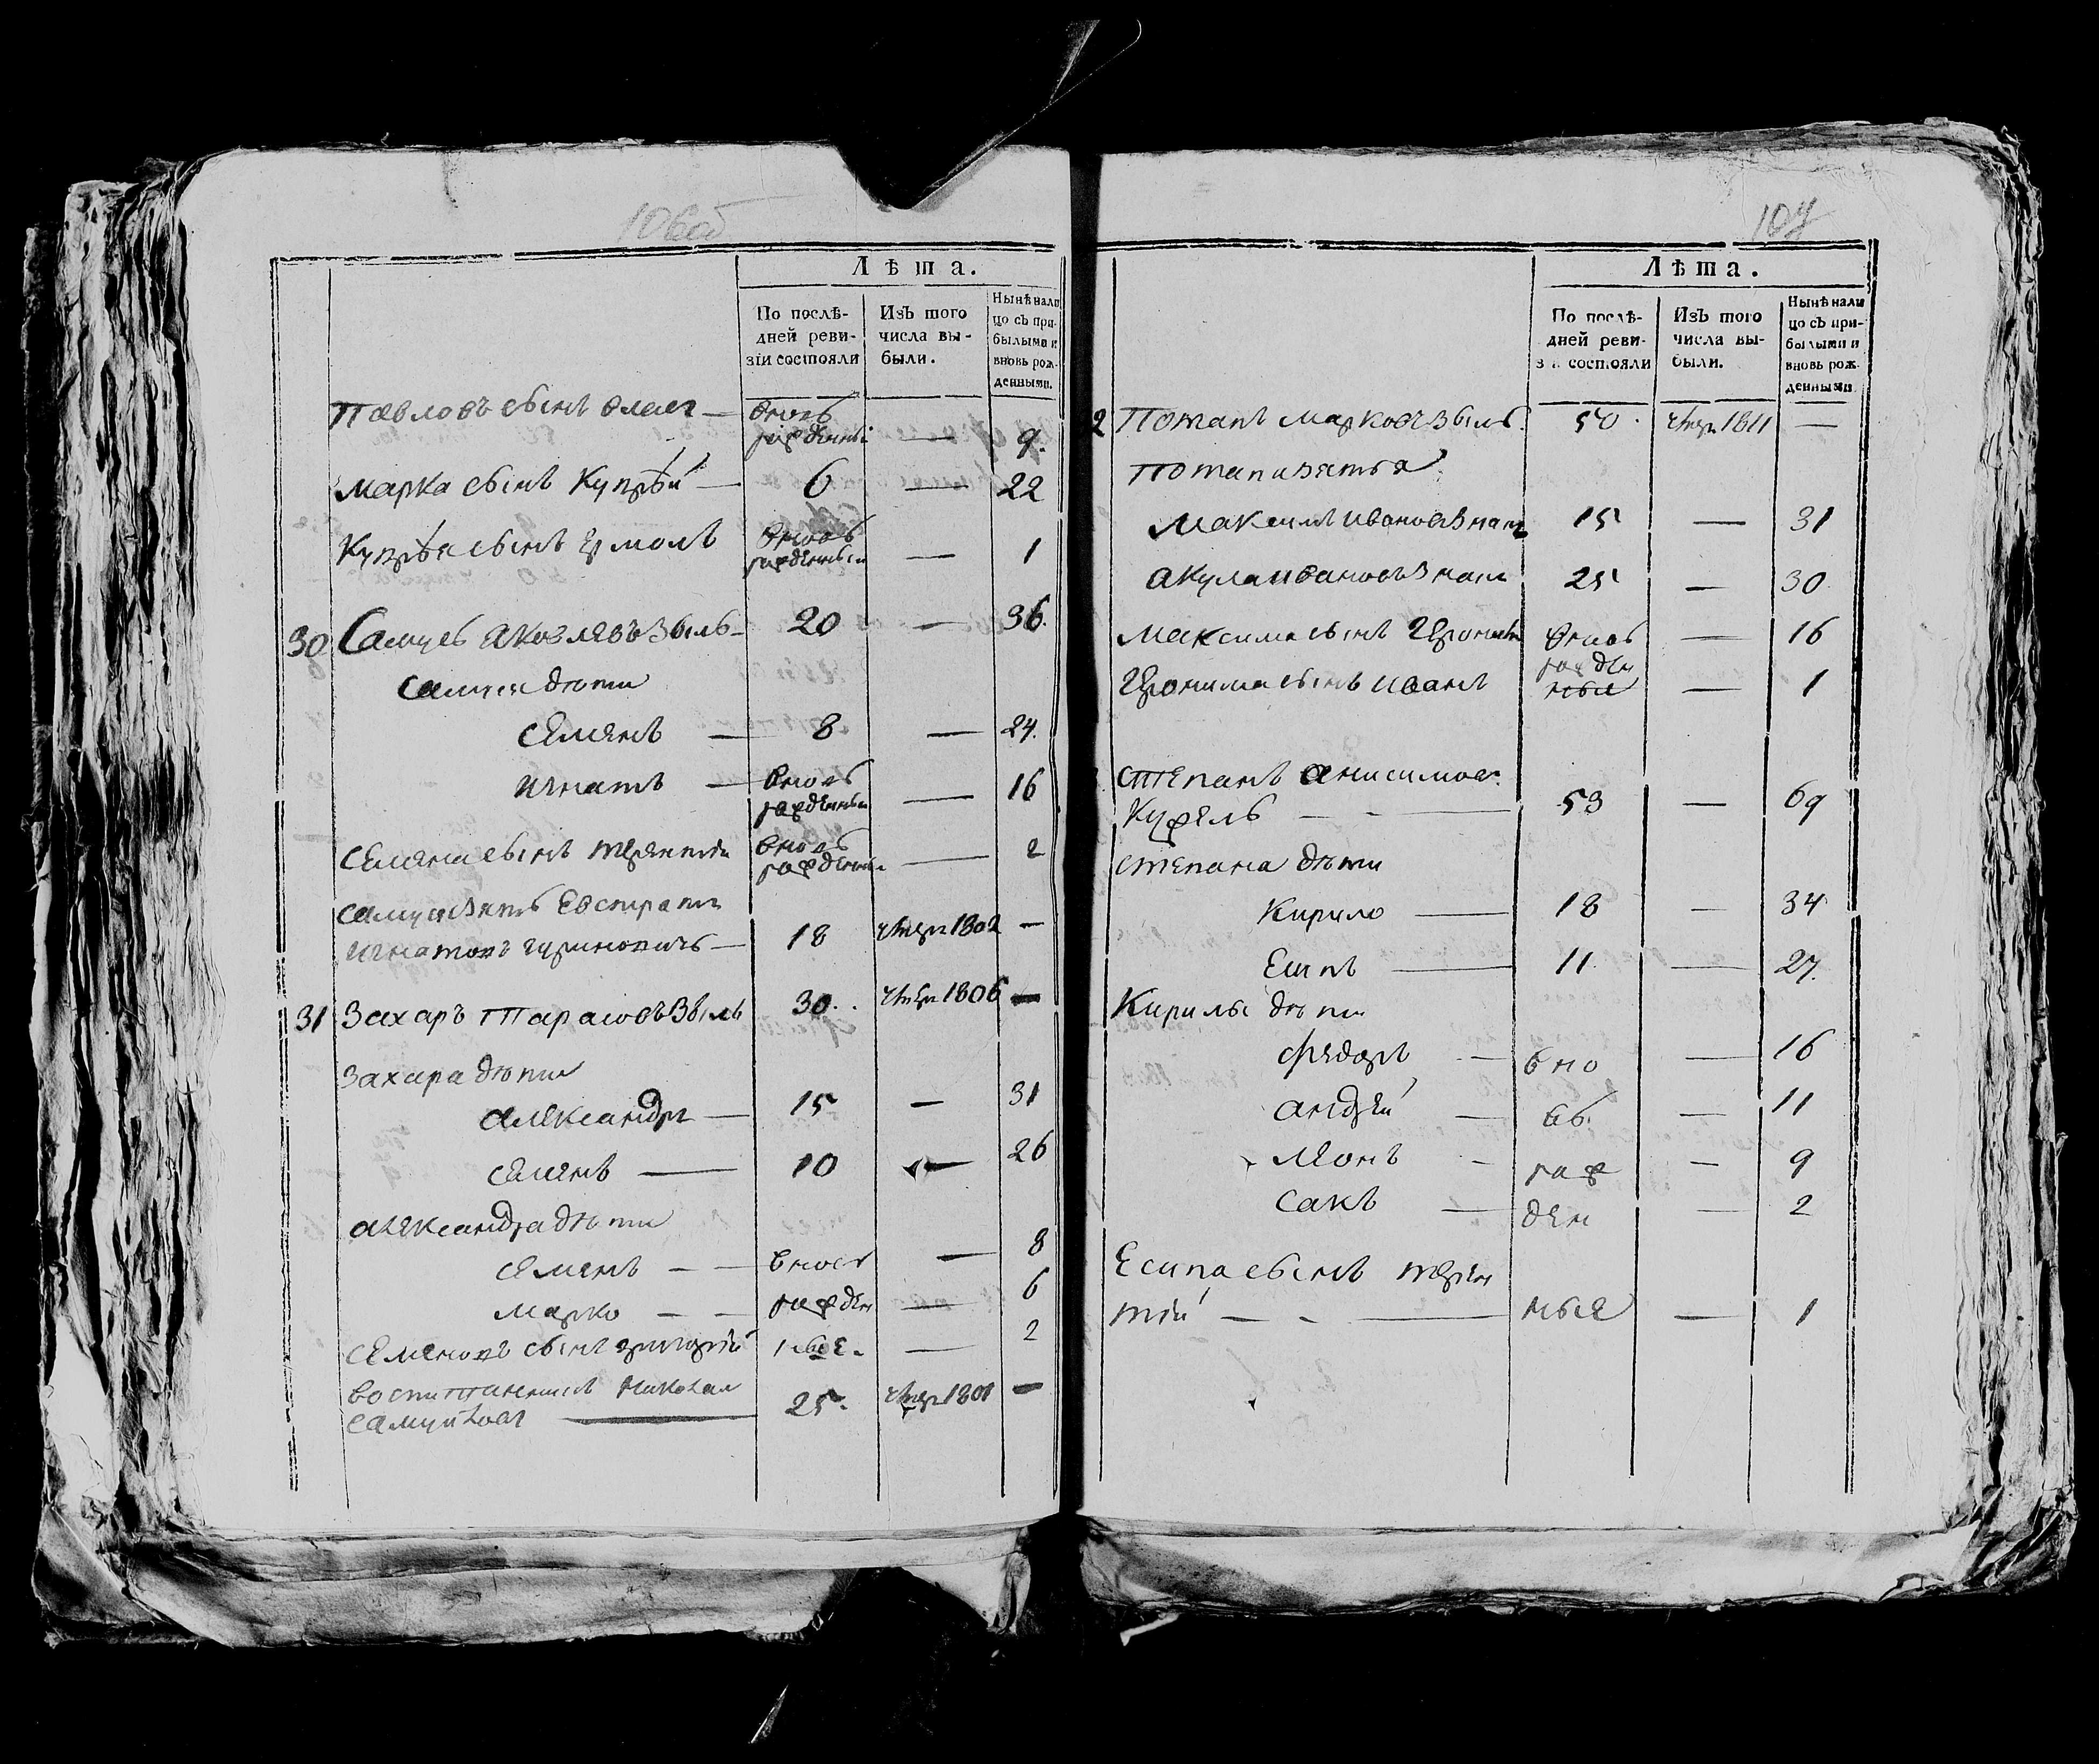 106об
Лѣта.
По послѣ-
дней реви-
зіи состояли
Изъ того
числа вы-
были.
Нынѣ нали
цо съ при-
былыми и
вновь рож-
денными.
Павловъ сынъ
вновь
рожденный — 9.
Марка сынъ Купрѣй — 6 — 22
Купрѣя сынъ Ермолъ вновь
рожденный — 1
30 Самуель Яковлевъ Зыль — 20 — 36.
Самуея дѣти
Семенъ — 8 — 24.
Игнатъ — вновь
рожденный — 16
Семена сынъ Терентій вновь
рожденный — 2
Самуея зять Евстрат
Игнатовъ Гуриновичъ — 18 умер 1802 —
31 Захаръ Тарасовъ Зыль 30. умер 1806 —
Захара дѣти
Александръ — 15 — 31
Семенъ — 10 — 26
Александра дѣти
Семенъ — — вновь — 8
Марко — — рожден — 6
Семеновъ сынъ Григорій ные. — 2
Воспитанникъ Николай
Самуйлов — 25. умер 1801 —
107
Лѣта.
По послѣ-
дней реви-
зіи состояли
Изъ того
числа вы-
были.
Нынѣ нали
цо съ при-
былыми и
вновь рож-
денными
2 Потапъ Марковъ Зыль. 50. умер 1811 —
Потапа зятья
Максимъ Ивановъ 15 — 31
Акула Ивановъ 25 — 30
Максима сынъ вновь — 16
рожден
сынъ Иванъ ные — 1
Степанъ Анисимов.
Кужель — — 53 — 69
Степана дѣти
Кирило — 18 — 34
Есипъ — 11. — 27.
Кирилы дѣти
Федоръ — вно — 16
Андрей — вь. — 11
Леонъ — рож — 9
Сакъ — ден — 2
Есипа сынъ Терен
тій — — ные — 1